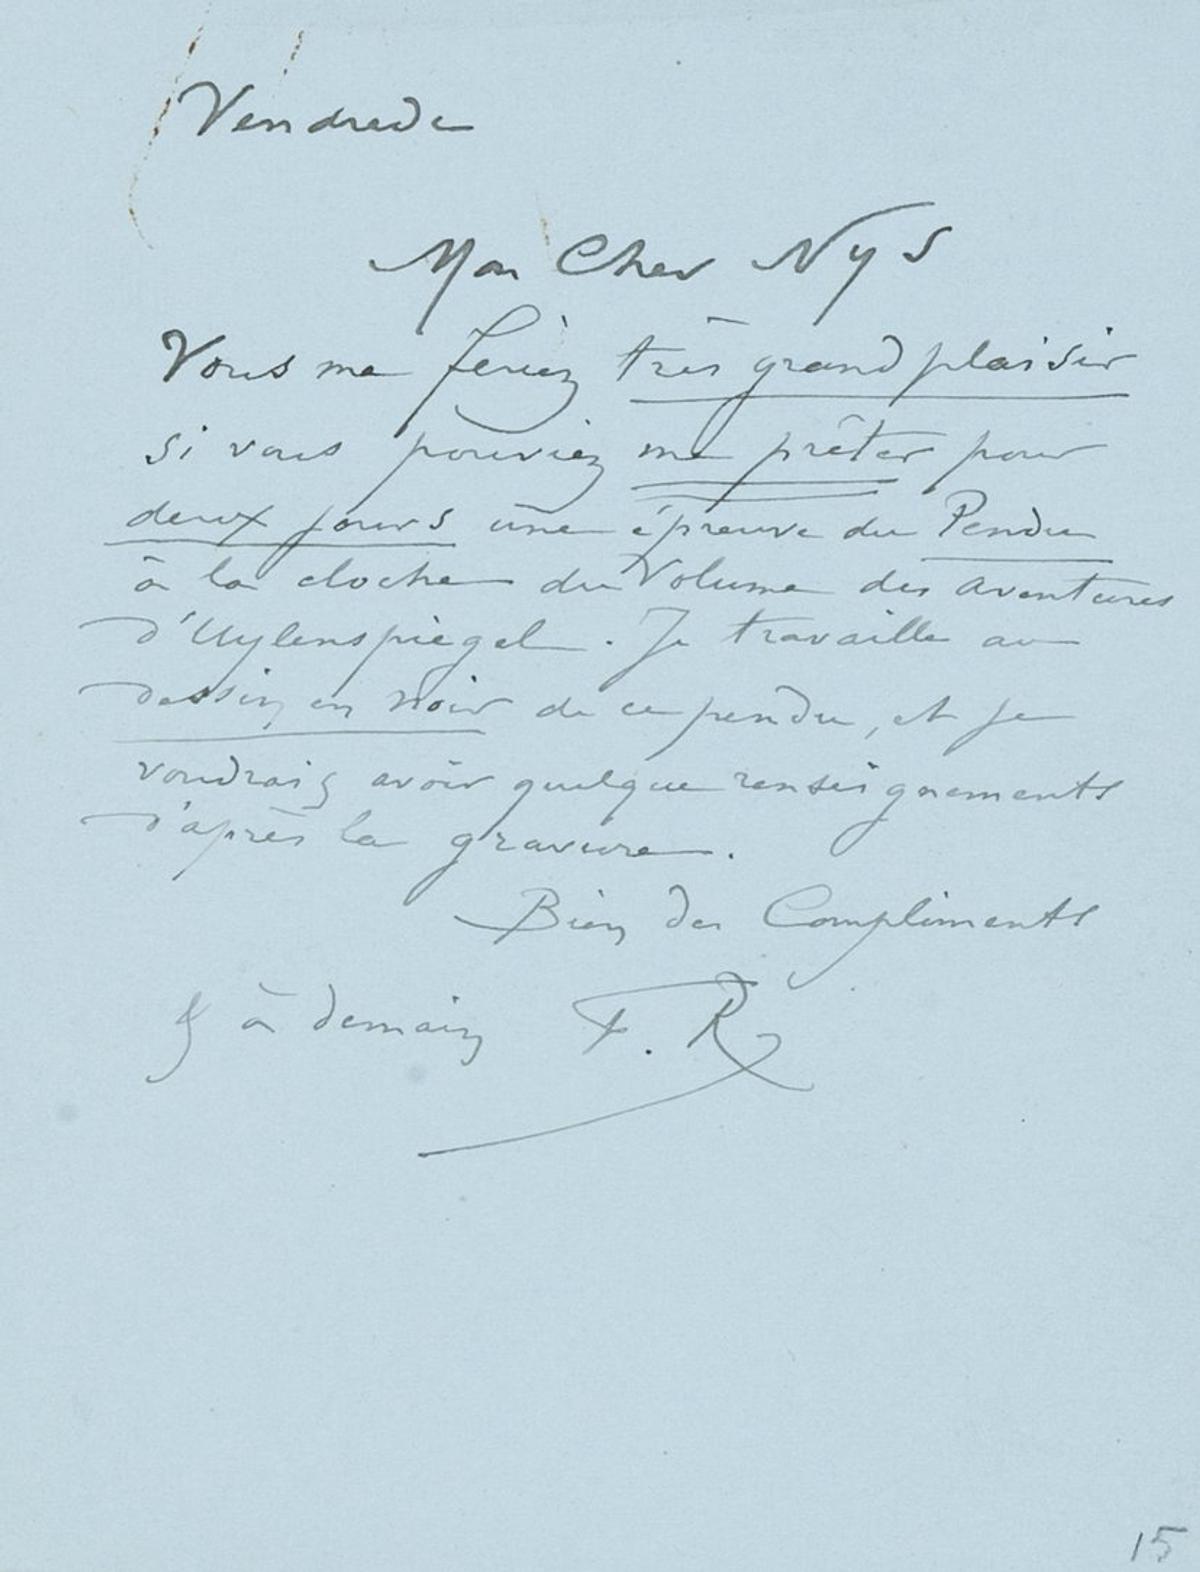 Vendrede
Mon Cher Nys
Vous me feriez très grand plaisir
si vous pouviez me prêter pour
deux jours une épreuve du Pendu
à la cloche du Volume des aventures
d'Uylenspiegel. Je travaille au
dessin en noir de ce pendu, et je
voudrais avoir quelque renseignements
d'après la gravure.
Bien des Compliments
& à demain F. R
15